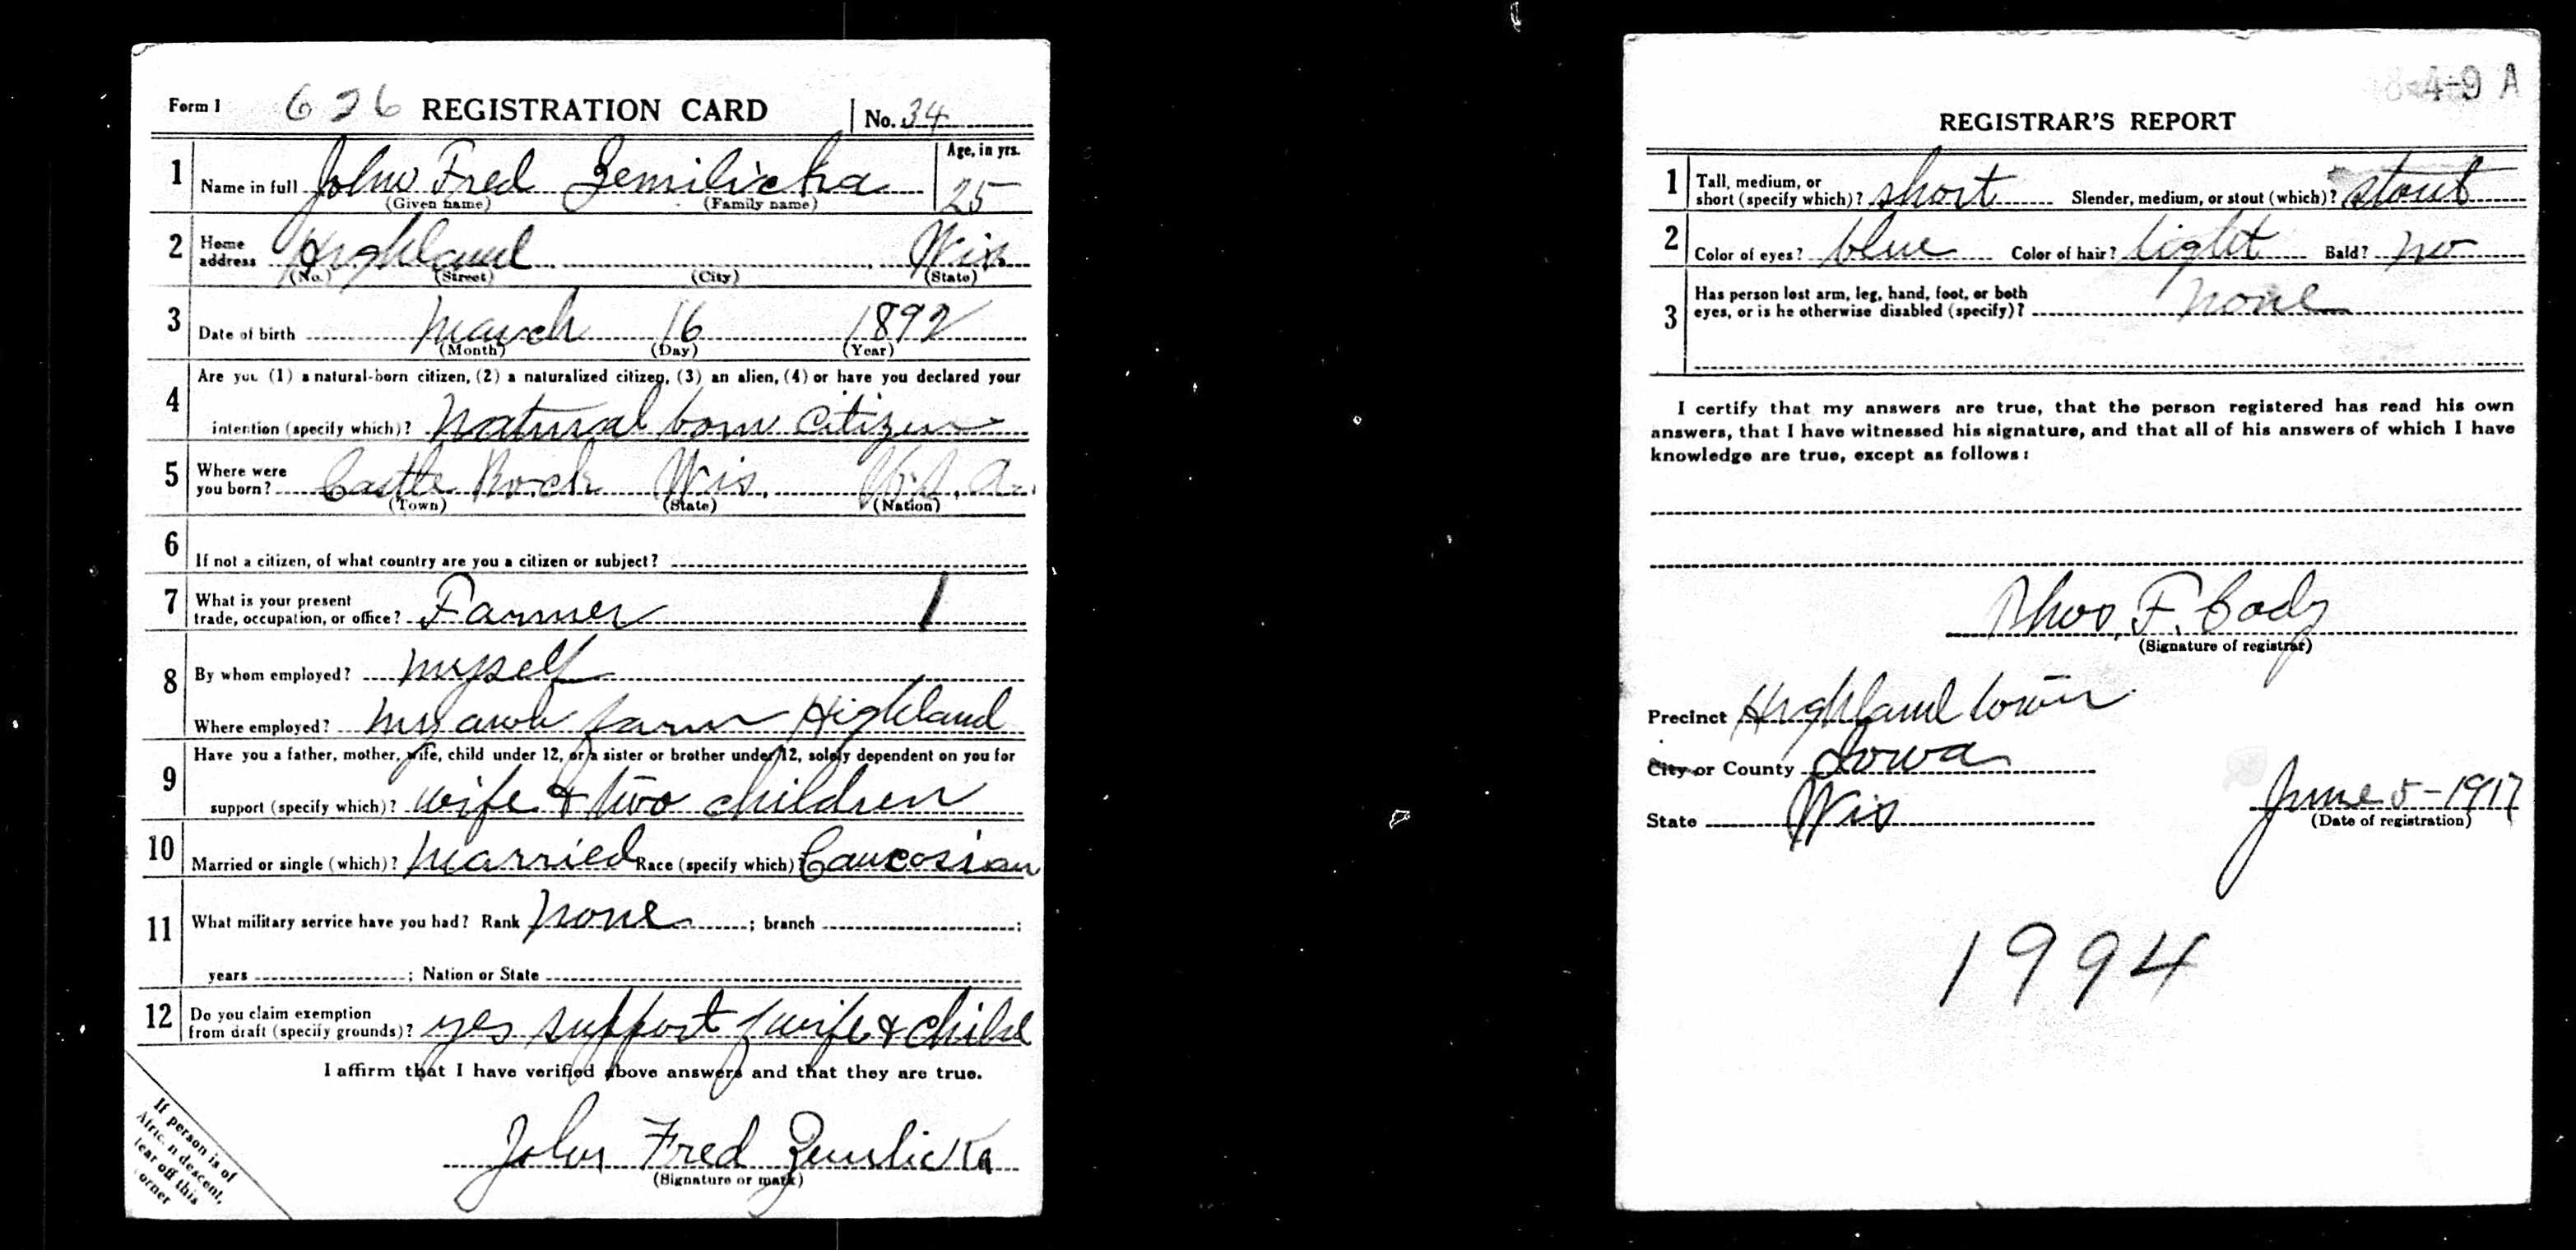 Form 1 626 REGISTRATION CARD No. 34
1 Name in full John Fred Zemilicka Age, in yrs. 25
(Given name) (Family name)
2 Home address Highland Wis.
(No.) (Street) (City) (State)
3 Date of birth March 16 1892
(Month) (Day) (Year)
4 Are you (1) a natural-born citizen, (2) a naturalized citizen, (3) an alien, (4) or have you declared your
intention (specify which)? Natural born citizen
5 Where were you born? Castle Rock Wis. U.S.A.
(Town) (State) (Nation)
6 If not a citizen, of what country are you a citizen or subject?
7 What is your present trade, occupation, or office? Farmer 1
8 By whom employed? myself
Where employed? my own farm Highland
9 Have you a father, mother, wife, child under 12, or a sister or brother under 12, solely dependent on you for
support (specify which)? wife & two children
10 Married or single (which)? married Race (specify which)? Caucosian
11 What military service have you had? Rank none ; branch ;
years ; Nation or State
12 Do you claim exemption from draft (specify grounds)? yes support of wife & child
I affirm that I have verified above answers and that they are true.
John Fred Zemlicka
(Signature or mark)
If person is of
African descent,
tear off this
corner
8-4-9 A
REGISTRAR'S REPORT
1 Tall, medium, or short (specify which)? short Slender, medium, or stout (which)? stout
2 Color of eyes? blue Color of hair? light Bald? no
3 Has person lost arm, leg, hand, foot, or both eyes, or is he otherwise disabled (specify)? none
I certify that my answers are true, that the person registered has read his own
answers, that I have witnessed his signature, and that all of his answers of which I have
knowledge are true, except as follows:
Thos. F. Cody
(Signature of registrar)
Precinct Highland town
City or County Iowa
State Wis
June 5-1917
(Date of registration)
1994